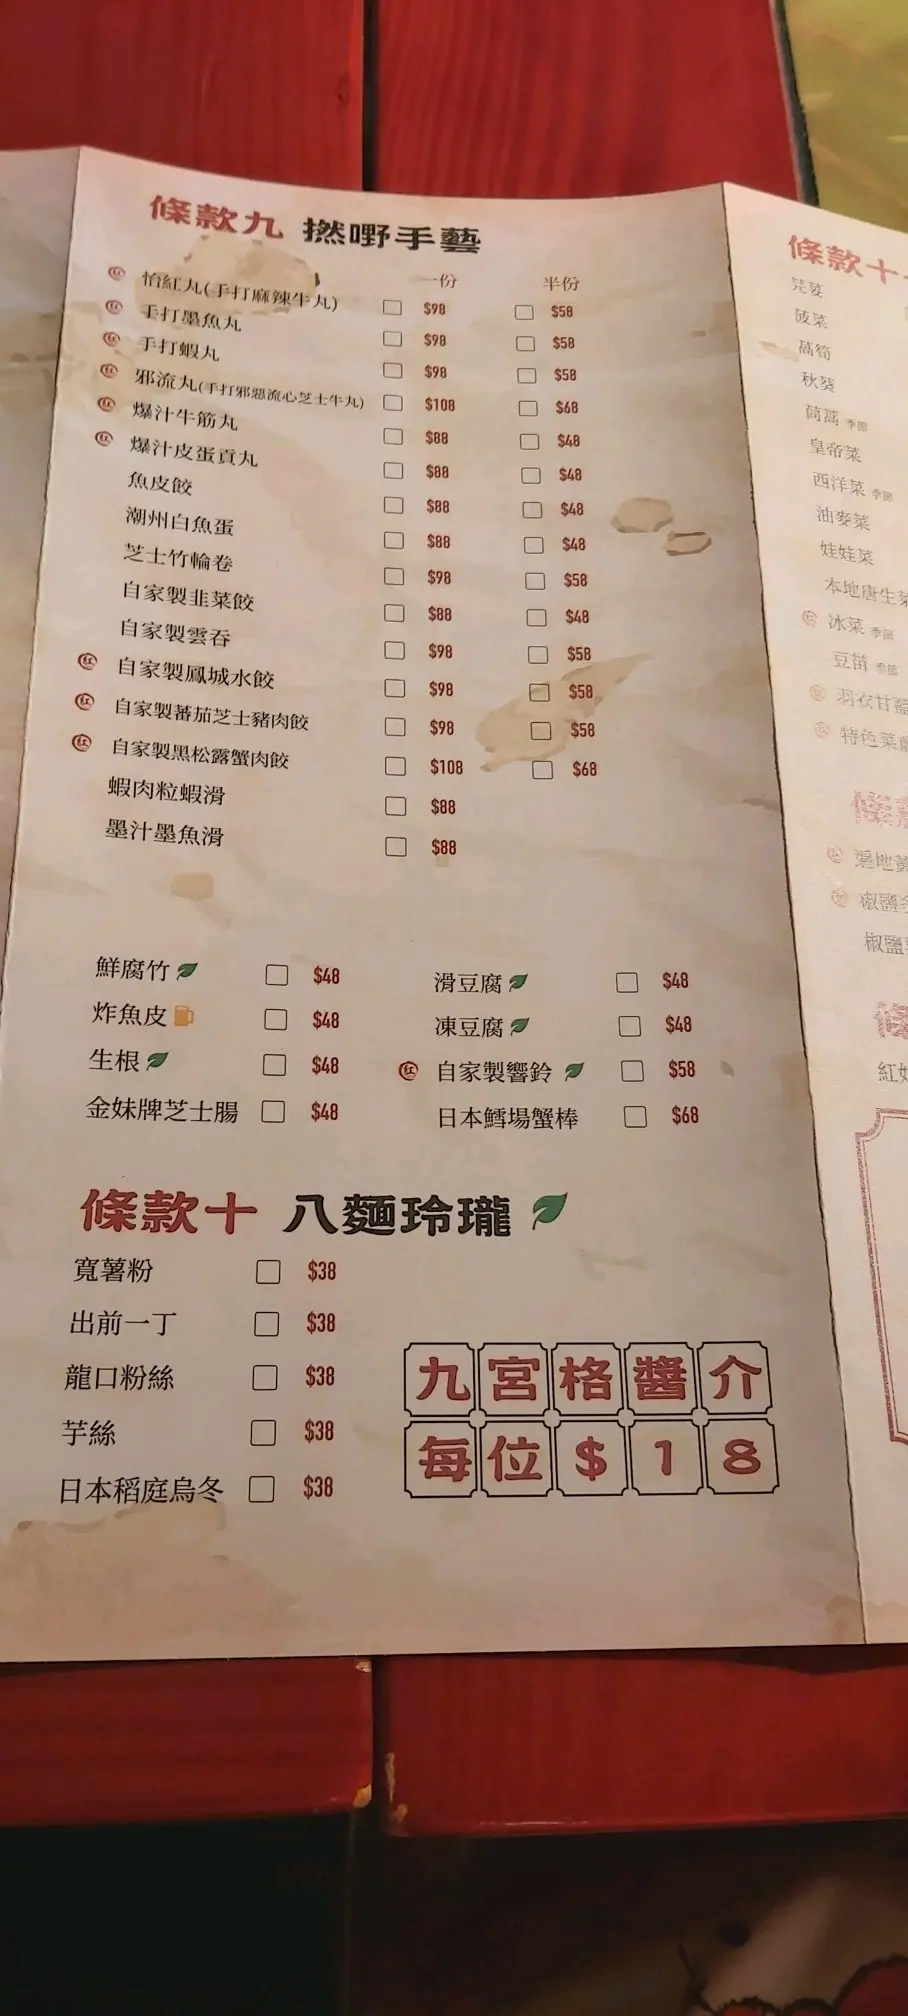 條款九 撚嘢手藝
一份 半份
紅 怡紅丸(手打麻辣牛丸) $98 $58
紅 手打墨魚丸 $98 $58
紅 手打蝦丸 $98 $58
紅 邪流丸(手打邪惡流心芝士牛丸) $108 $68
紅 爆汁牛筋丸 $88 $48
紅 爆汁皮蛋貢丸 $88 $48
魚皮餃 $88 $48
潮州白魚蛋 $88 $48
芝士竹輪卷 $98 $58
自家製韭菜餃 $88 $48
自家製雲吞 $98 $58
紅 自家製鳳城水餃 $98 $58
紅 自家製蕃茄芝士豬肉餃 $98 $58
紅 自家製黑松露蟹肉餃 $108 $68
蝦肉粒蝦滑 $88
墨汁墨魚滑 $88
鮮腐竹 $48
炸魚皮 $48
生根 $48
金妹牌芝士腸 $48
滑豆腐 $48
凍豆腐 $48
紅 自家製響鈴 $58
日本鱈場蟹棒 $68
條款十 八麵玲瓏
寬薯粉 $38
出前一丁 $38
龍口粉絲 $38
芋絲 $38
日本稻庭烏冬 $38
九宮格醬介
每位$18
條款十
芫荽
菠菜
萵筍
秋葵
茼蒿 季節
皇帝菜
西洋菜 季節
油麥菜
娃娃菜
本地唐生菜
紅 冰菜 季節
豆苗 季節
紅 羽衣甘藍
紅 特色菜
條
紅 遍地黃
紅 椒鹽
椒鹽
條
紅